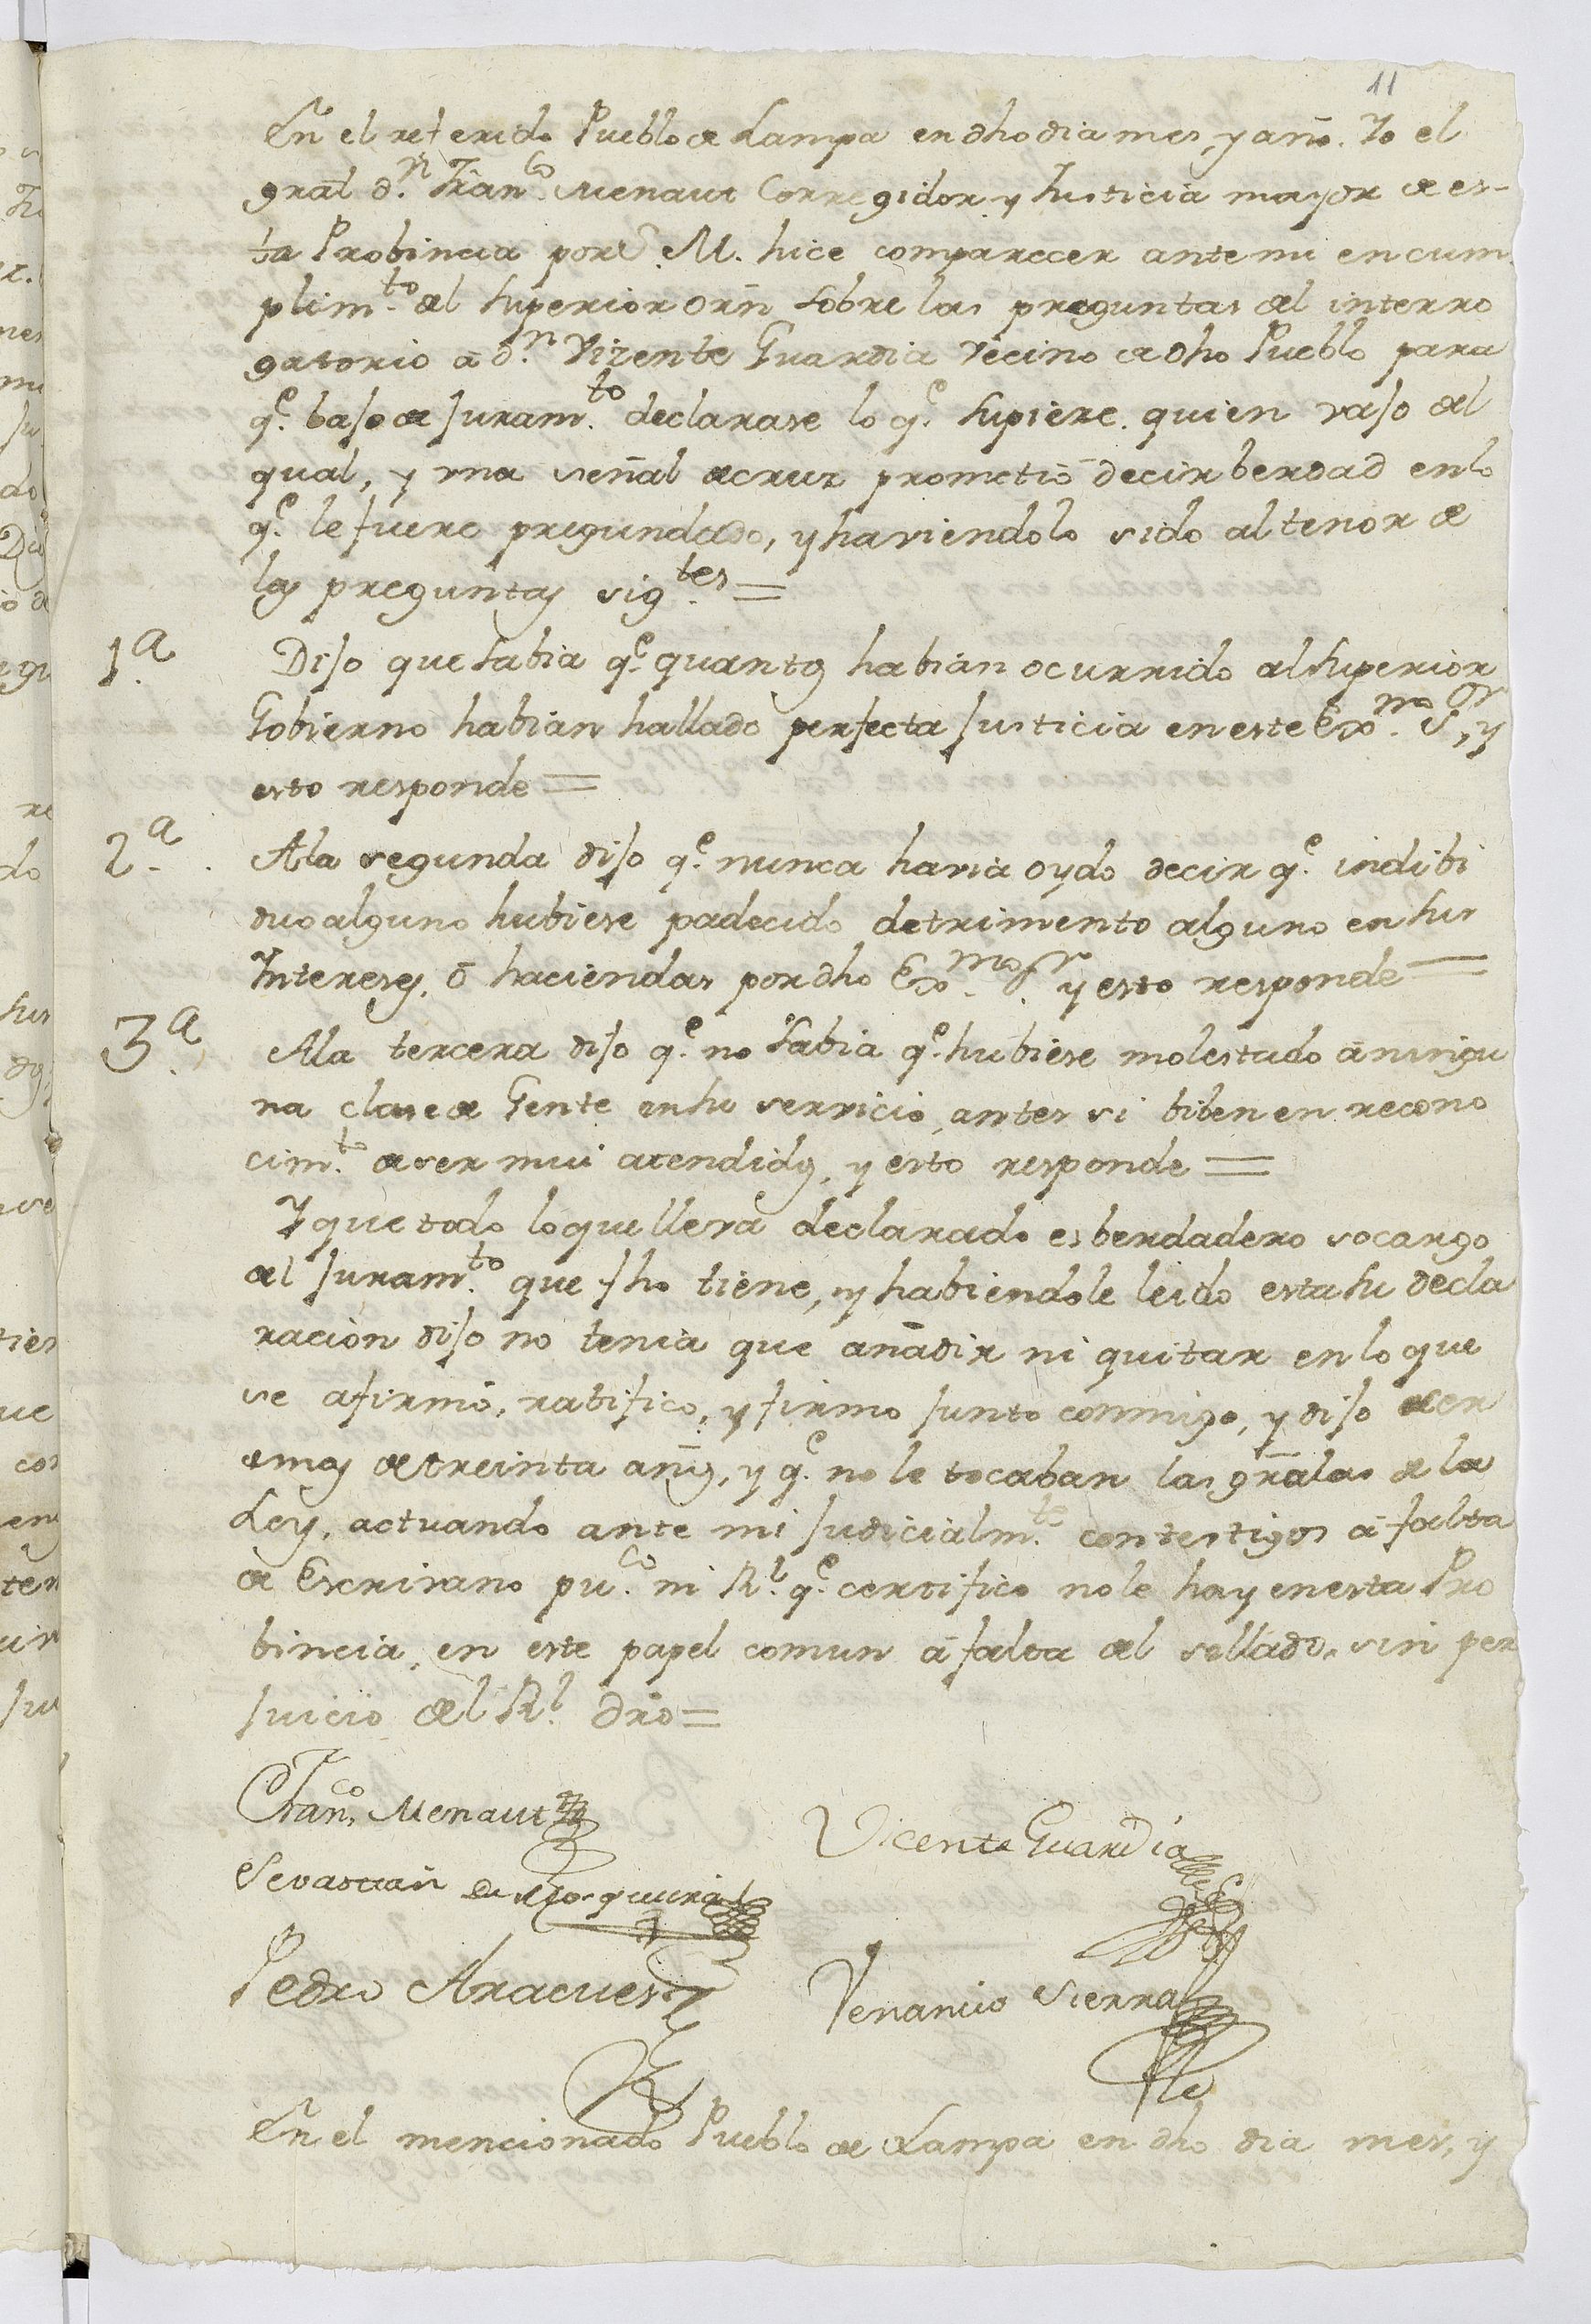 11
En el referido Pueblo de Lampa en dho dia mes, y año. Yo el
gral d.n Fran.co Menaut Corregidor y Justicia mayor de es-
ta Probincia por S. M. hice comparecer ante mi en cum
plim.to del Superior orn sobre las preguntas del interro
gatorio à d.n Vizente Guardia vecino de dho Pueblo para
q.e bajo de juram.to declarase lo q.e supiere. quien vajo del
qual, y una señal de cruz prometiò decir berdad en lo
q.e le fuere pregundado, y haviendolo sido al tenor de
las preguntas sig.tes =
1.a Dijo que sabia q.e quantos habian ocurrido al Superior
Gobierno habian hallado perfecta justicia en este Exo.mo S.or, y
esto responde =
2.a A la segunda dijo q.e nunca havia oydo decir q.e indibi
duo alguno hubiese padecido detrimento alguno en sus
Intereses, ò haciendas por dho Exo.mo S.r y esto responde =
3.a A la tercera dijo q.e no sabia q.e hubiese molestado à ningu
na clase de Gente en su servicio, antes si biben en recono
cim.to de ser mui atendidos, y esto responde =
Y que todo lo que lleva declarado es berdadero socargo
del juram.to que fho tiene, y habiendole leido esta su decla
racion dijo no tenia que añadir ni quitar en lo que
se afirmò, ratificò, y firmo junto conmigo, y dijo de ser
de mas de treinta años, y q.e no le tocaban las grâlas de la
Ley, actuando ante mi judicialm.te con testigos à falta
de Escrivano pu.co ni R.l q.e certifico no le hay en esta Pro
bincia, en este papel comun à falta del sellado, sin per
juicio del R.l dro =
Fran.co Menaut
Vicente Guardia
Sevastian de
Pedro Aracues
Venancio Sierra
En el mencionado Pueblo de Lampa en dho dia mes, y